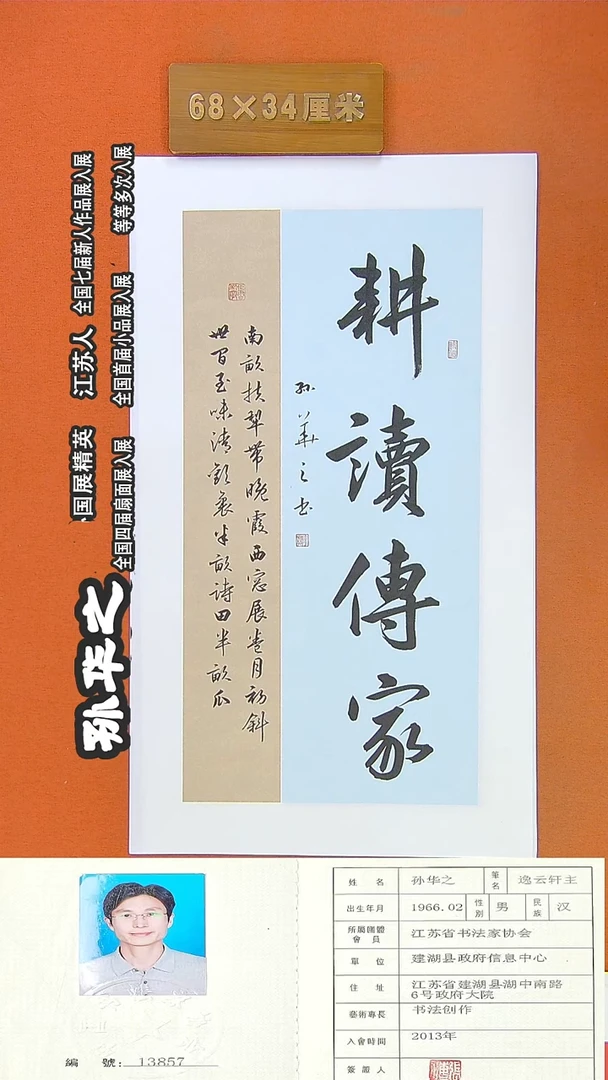 68×34厘米
耕讀傳家
孙華之书
南畝扶犁帶晚霞西窓展卷月初斜
世間至味清歡裏半畝詩田半畝瓜
孙华之
国展精英 江苏人 全国七届新人作品展入展
全国四届扇面展入展 全国首届小品展入展 等等多次入展
編 號：13857
姓 名 孙华之 筆名 逸云轩主
出生年月 1966.02 性別 男 民族 汉
所屬團體會員 江苏省书法家协会
單 位 建湖县政府信息中心
住 址 江苏省建湖县湖中南路
6号政府大院
藝術專長 书法创作
入會時間 2013年
簽證人